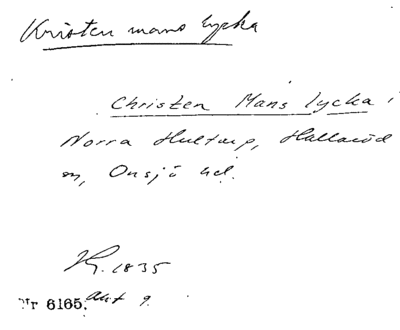 Kristen mans lycka
Christen Mans lycka i
Norra Hultarp, Hallaröd
sn, Onsjö hd.
Kr. 1835
Nr 6165. Akt 9.